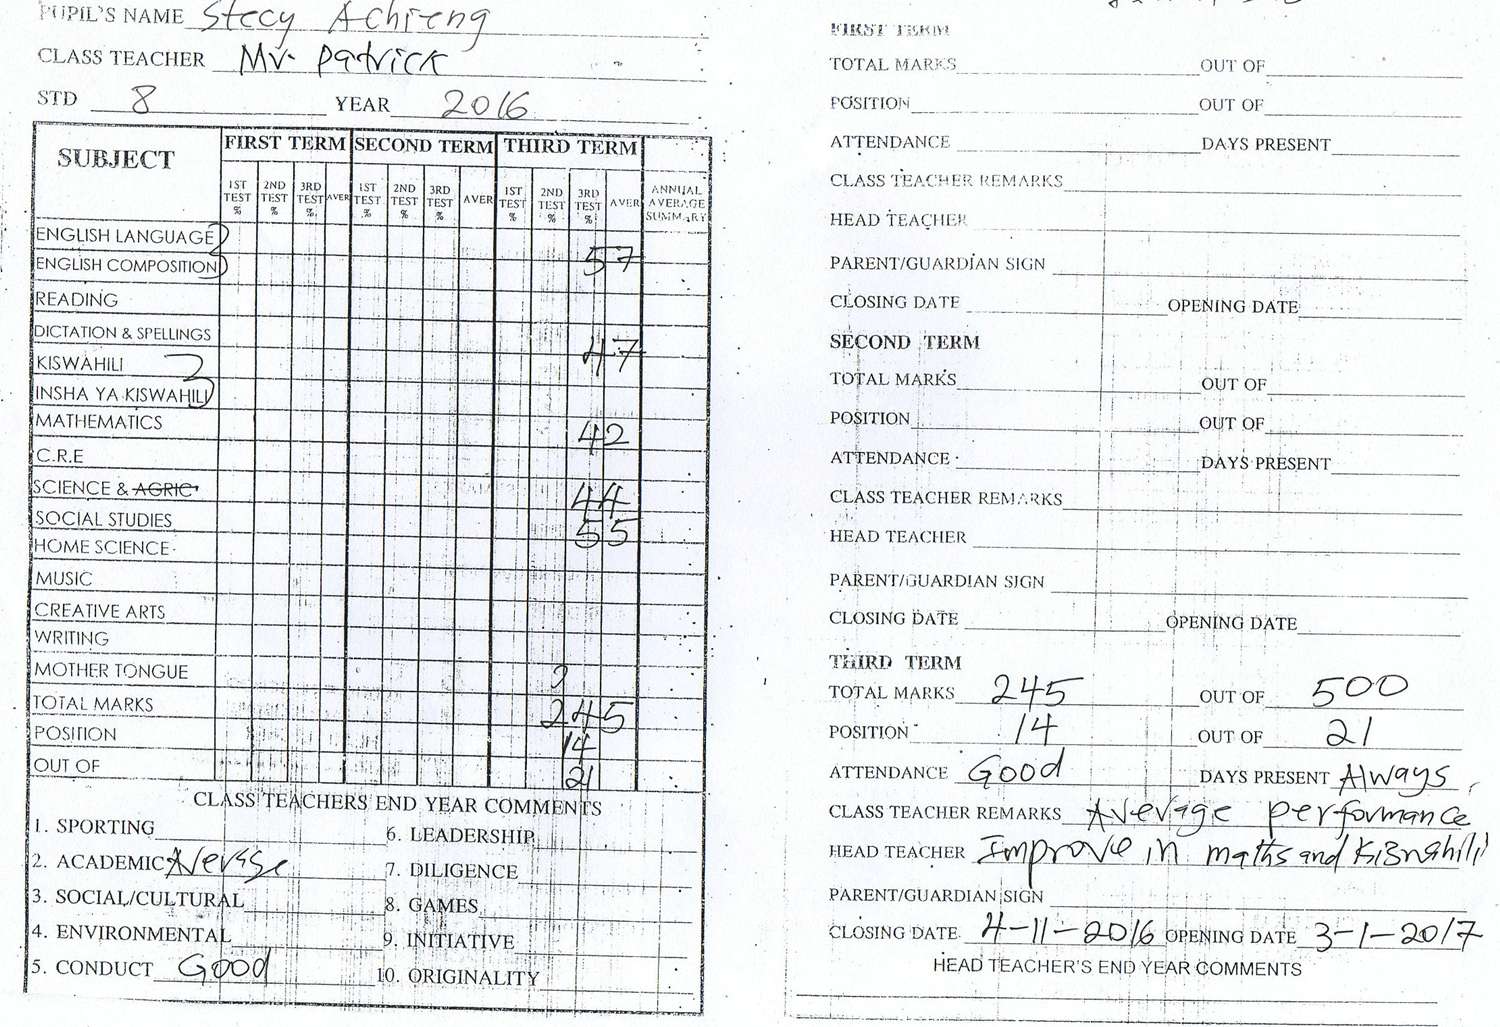 PUPIL'S NAME Stecy Achieng
CLASS TEACHER Mr. Patrick
STD 8 YEAR 2016
SUBJECT FIRST TERM SECOND TERM THIRD TERM
1ST TEST % 2ND TEST % 3RD TEST % AVER 1ST TEST % 2ND TEST % 3RD TEST % AVER 1ST TEST % 2ND TEST % 3RD TEST % AVER ANNUAL AVERAGE SUMMARY
ENGLISH LANGUAGE
ENGLISH COMPOSITION 57
READING
DICTATION & SPELLINGS
KISWAHILI 47
INSHA YA KISWAHILI
MATHEMATICS 42
C.R.E
SCIENCE & AGRIC 44
SOCIAL STUDIES 55
HOME SCIENCE
MUSIC
CREATIVE ARTS
WRITING
MOTHER TONGUE
TOTAL MARKS 245
POSITION 14
OUT OF 21
CLASS TEACHERS END YEAR COMMENTS
1. SPORTING 6. LEADERSHIP
2. ACADEMIC 7. DILIGENCE
3. SOCIAL/CULTURAL 8. GAMES
4. ENVIRONMENTAL 9. INITIATIVE
5. CONDUCT Good 10. ORIGINALITY
FIRST TERM
TOTAL MARKS OUT OF
POSITION OUT OF
ATTENDANCE DAYS PRESENT
CLASS TEACHER REMARKS
HEAD TEACHER
PARENT/GUARDIAN SIGN
CLOSING DATE OPENING DATE
SECOND TERM
TOTAL MARKS OUT OF
POSITION OUT OF
ATTENDANCE DAYS PRESENT
CLASS TEACHER REMARKS
HEAD TEACHER
PARENT/GUARDIAN SIGN
CLOSING DATE OPENING DATE
THIRD TERM
TOTAL MARKS 245 OUT OF 500
POSITION 14 OUT OF 21
ATTENDANCE Good DAYS PRESENT Always
CLASS TEACHER REMARKS Average performance
HEAD TEACHER Improve in maths and
PARENT/GUARDIAN SIGN
CLOSING DATE 4-11-2016 OPENING DATE 3-1-2017
HEAD TEACHER'S END YEAR COMMENTS